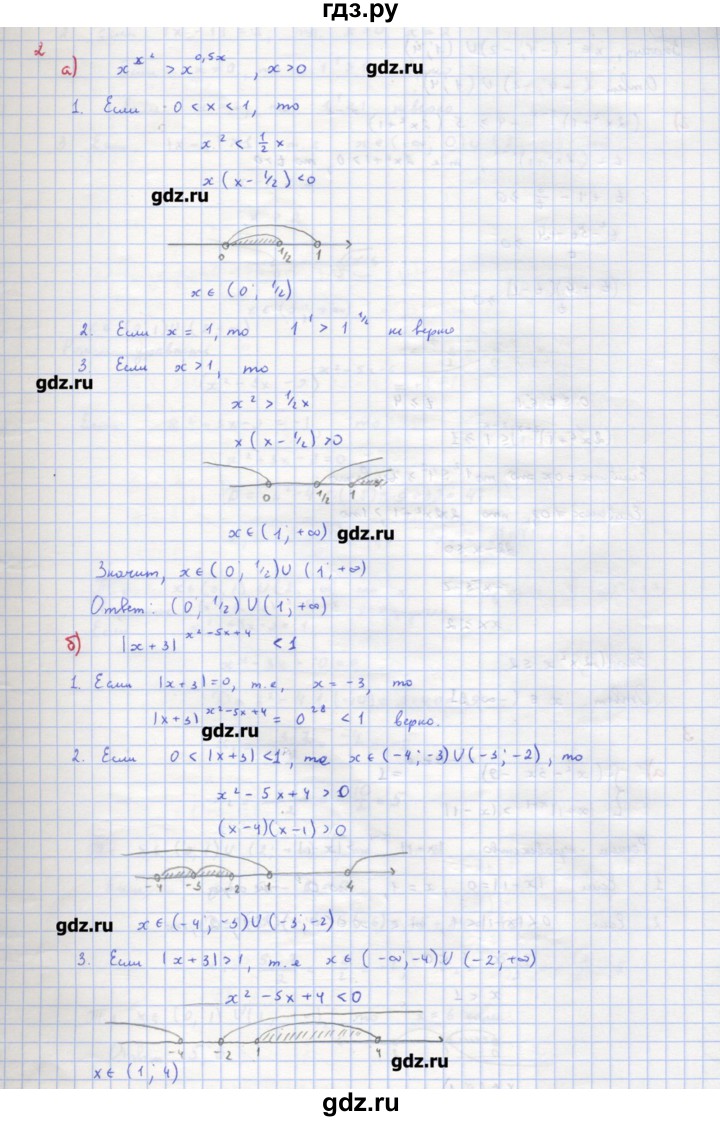 гдз.ру
2
а) x^{x^2} > x^{0,5x}, x>0
gdz.ru
1. Если 0 < x < 1, то
x^2 < 1/2 x
x(x - 1/2) < 0
gdz.ru
0 1/2 1
x ∈ (0; 1/2)
2. Если x = 1, то 1^1 > 1^{1/2} не верно
3 Если x > 1, то
gdz.ru
x^2 > 1/2 x
x(x - 1/2) > 0
0 1/2 1
x ∈ (1; +∞)
gdz.ru
Значит, x ∈ (0; 1/2) ∪ (1; +∞)
Ответ: (0; 1/2) ∪ (1; +∞)
б) |x + 3|^{x^2 - 5x + 4} < 1
1. Если |x + 3| = 0, т.е, x = -3, то
|x + 3|^{x^2 - 5x + 4} = 0^{28} < 1 верно.
gdz.ru
2. Если 0 < |x + 3| < 1, те x ∈ (-4; -3) ∪ (-3; -2), то
x^2 - 5x + 4 > 0
(x - 4)(x - 1) > 0
-4 -3 -2 1 4
gdz.ru
x ∈ (-4; -3) ∪ (-3; -2)
3. Если |x + 3| > 1, т.е x ∈ (-∞; -4) ∪ (-2; +∞)
x^2 - 5x + 4 < 0
-4 -2 1 4
gdz.ru
x ∈ (1; 4)
gdz.ru